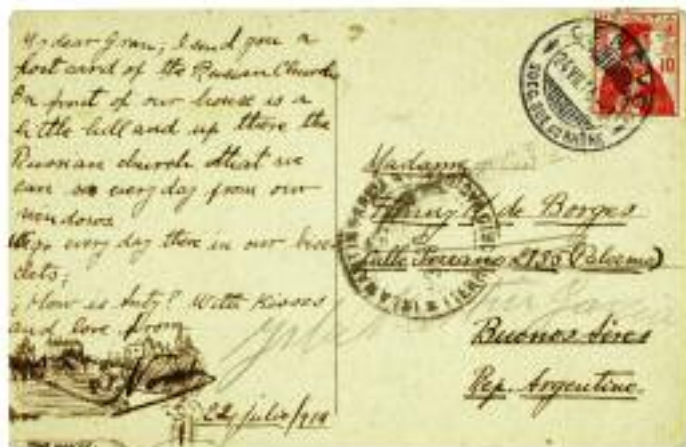 My dear Gran; I send you a
post card of the Russian Church
On front of our house is a
little hill and up there the
Russian church that we
can se every day from our
windows
We go every day there in our bicec
clets;
How is Anty? With Kisses
and love from
22 julio/914
HELVETIA
10
Madame
Fanny H. de Borges
Calle Serrano 2135 (Palermo)
Buenos Aires
Rep. Argentina.